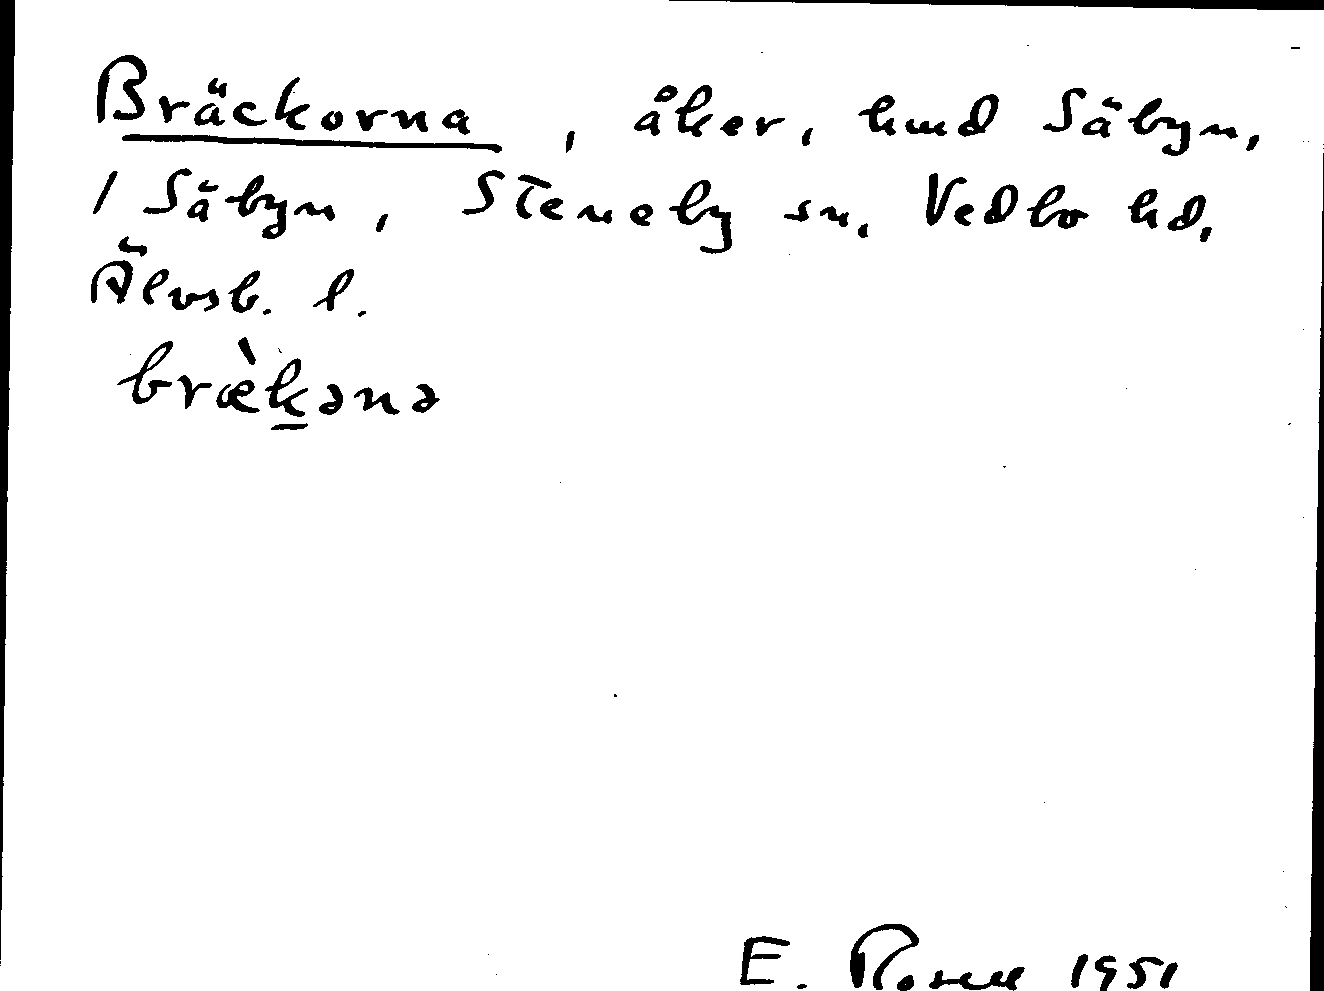 Bräckorna, åker, hmd Säbyn,
1 Säbyn, Steneby sn, Vedbo hd,
Älvsb. l.
bræ̀k̲ənə
E. Rosell 1951